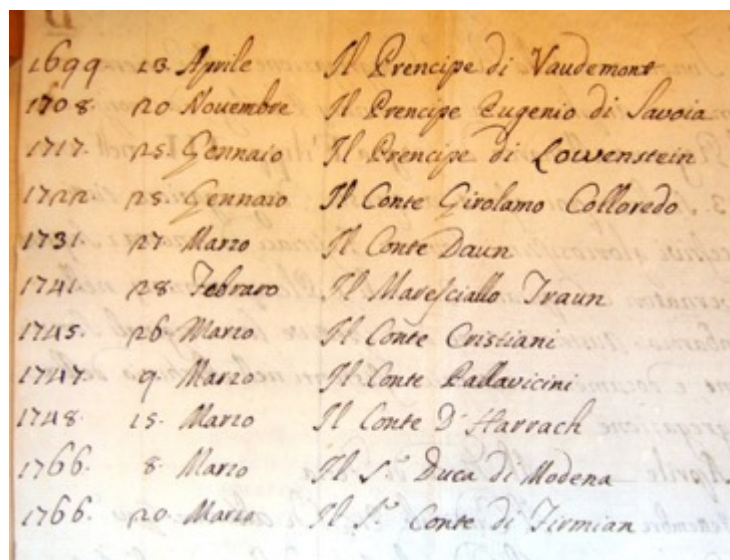 1699 13. Aprile Il Prencipe di Vaudemont
1708. 20 Nouembre Il Prencipe Eugenio di Savoia
1717. 25. Gennaio Il Prencipe di Lowenstein
1722 25 Gennaio Il Conte Girolamo Colloredo
1731. 27 Marzo Il Conte Daun
1741. 28 Febraro Il Maresciallo Traun
1745. 26 Marzo Il Conte Cristiani
1747. 9 Marzo Il Conte Pallavicini
1748. 15. Marzo Il Conte D'Harrach
1766. 8. Marzo Il S.r Duca di Modena
1766. 20 Marzo Il S.r Conte di Firmian